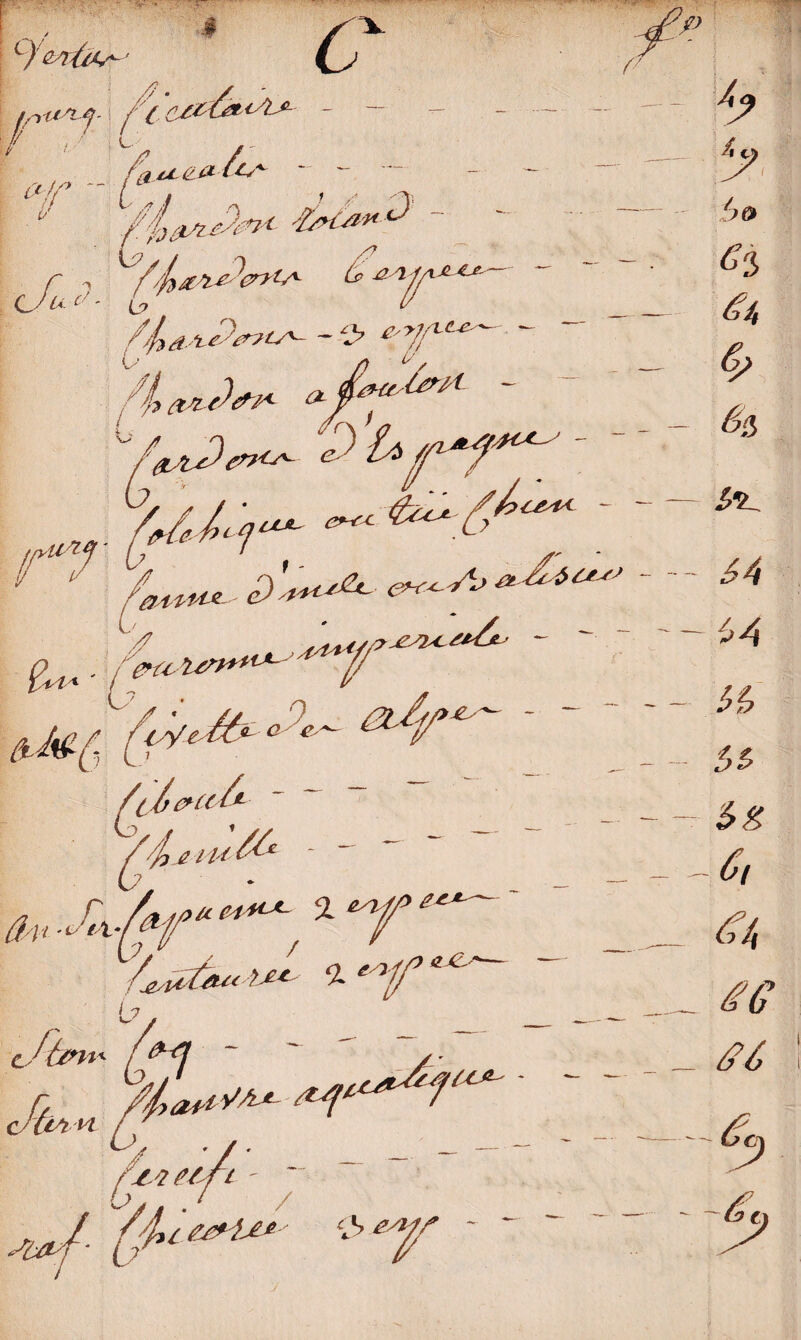 Vertus C fo
purg. Cicutaire - - - - - - 49
ap - Caucalis - - - - - - 49
Chardon Roland - - - - 50
Sud. Chardons 6 especes - - - . 63
Chardons - 3 especes - - - - 64
Chardon a foulon - - - 67
Cardons d'Espagne - - - - 63
purg. Colchique ou tüe Chien - - - 52
Canne d'inde ou Balisier - - - 54
Em. Couronne imperiale - - - - - 54
Civette des Alpes - - - - - 55
Ciboule - - - - - - - 55
Chenille - - - - - - - - 58
Capucine 2 especes - - - - - 61
Centaureé 2 especes - - - 64
Stom Coq - - - - - - - - 66
Stern Chanvre aquatique - - - - - 66
Cercifi - - - - - - - - 69
raf. Chicoreé 3 esp - - - - - - 69